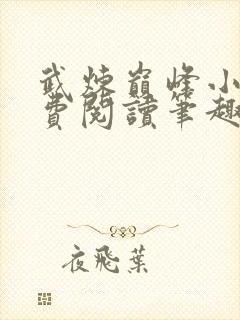 武煉巔峰小
費閱讀筆趣
夜飛葉